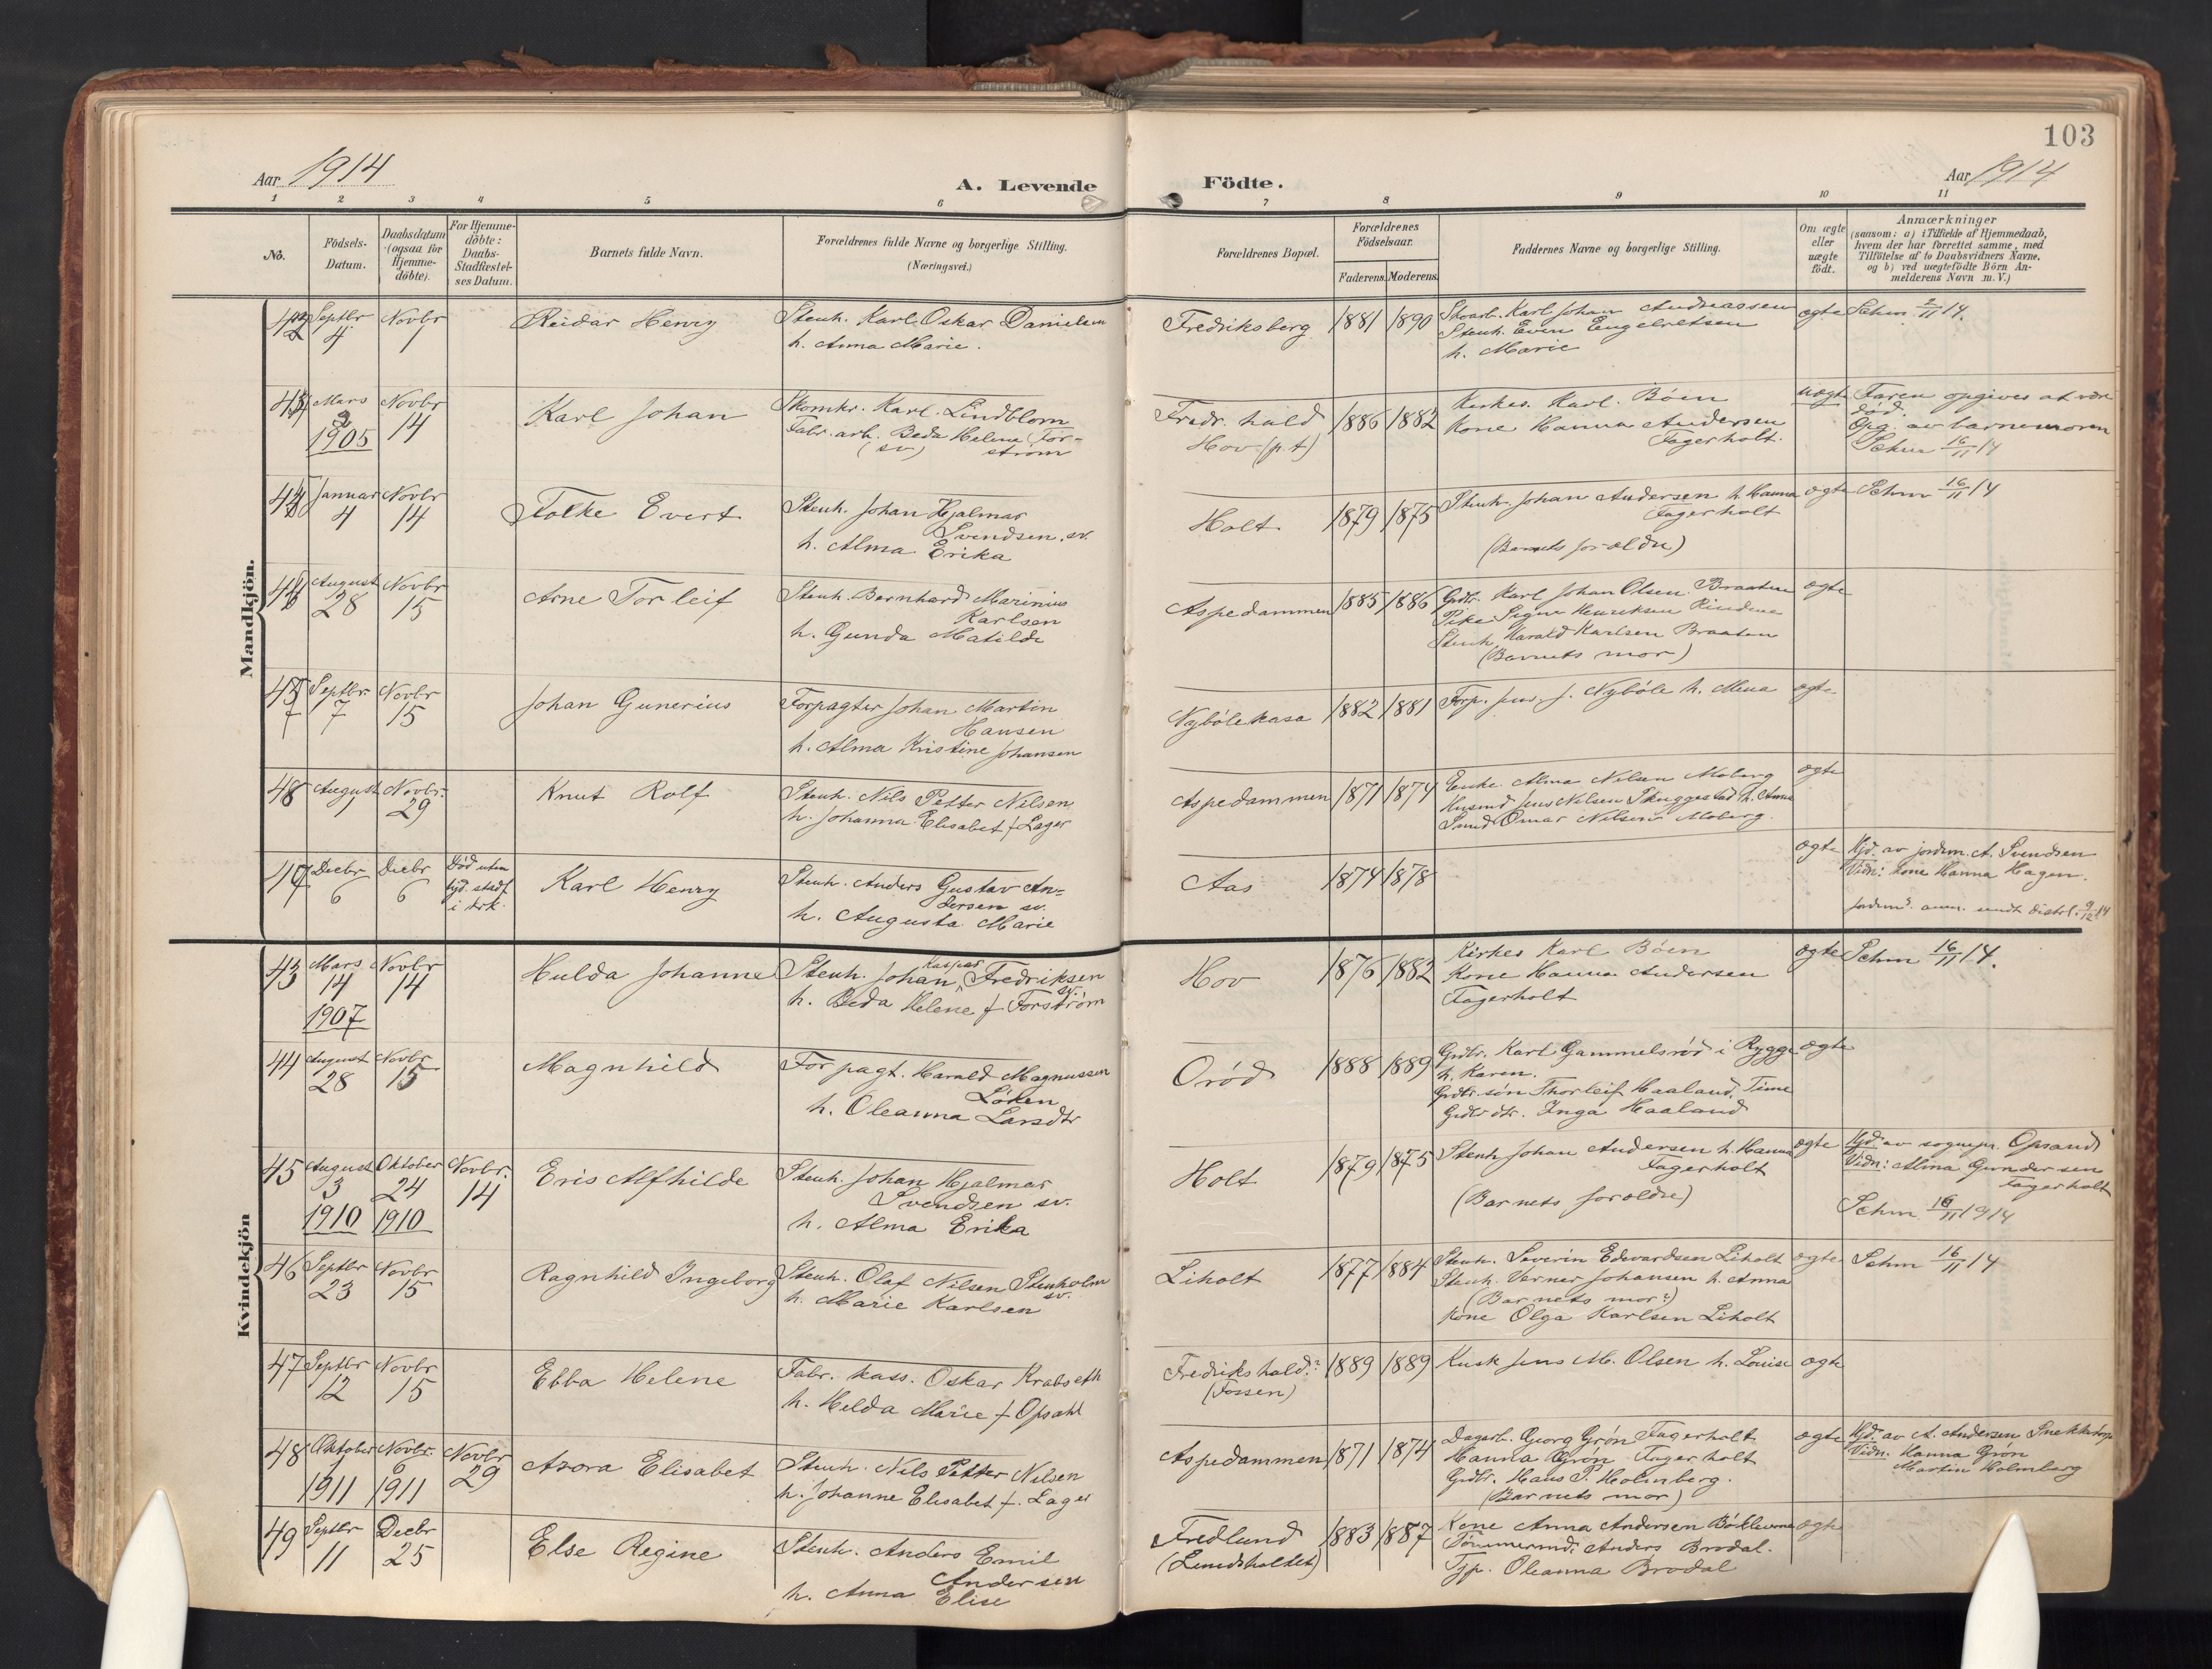 103
Aar 1914
A. Levende Födte.
Aar 1914
1 2 3 4 5 6 7 8 9 10 11
No.
Födsels-Datum.
Daabsdatum (ogsaa for Hjemme-döbte).
For Hjemme-döbte: Daabs-Stadfæstel-ses Datum.
Barnets fulde Navn.
Forældrenes fulde Navne og borgerlige Stilling.
(Næringsvei.)
Forældrenes Bopæl.
Forældrenes Födselsaar.
Faderens. Moderens.
Faddernes Navne og borgerlige Stilling.
Om ægte eller uægte födt.
Anmærkninger
(saasom: a) i Tilfælde af Hjemmedaab,
hvem der har forrettet samme, med
Tilföielse af to Daabsvidners Navne.
og b) ved uægtefödte Börn An-
melderens Navn m. V.)
Mandkjön.
42 Septbr 4 Novbr 1 Reidar Henry
Stenh. Karl Oskar Danielsen
h. Anna Marie.
Fredriksberg 1881 1890
Karl Johan Andreassen
Stenh. Even Engebretsen
h. Marie
ægte Schm 2/11 14.
43 Mars 2 1905 Novbr 14 Karl Johan
Skomkr. Karl Lindblom
Fabr. arb. Beda Helena For-
ström (sv)
Fredr.hald
Hov (p.t) 1886 1882
Kirkes. Karl Böen
Kone Hanna Andersen
Fagerholt.
uægte Faren opgives at være
död.
Opg. av barnemoren
Schm 16/11 14
44 Januar 4 Novbr 14 Folke Evert
Stenh. Johan Hjalmar
Svendsen, sv.
h. Alma Erika
Holt 1879 1875
Stenh. Johan Andersen h. Hanna
Fagerholt
(Barnets forældre)
ægte Schm 16/11 14
August 28 Novbr 15 Arne Torleif
Stenh. Bernhard Marinius
Karlsen
h. Gunda Matilde
Aspedammen 1885 1886
Grdbr. Karl Johan Olsen Braaten
Pike Signe Henriksen
Stenh. Harald Karlsen Braaten
(Barnets mor)
ægte
Septbr 7 Novbr 15 Johan Gunerius
Forpagter Johan Martin
Hansen
h. Alma Kristine Johansen
Nybölekasa 1882 1881
Forp. Jens J. Nyböle h. Mina
ægte
48 August 1 Novbr. 29 Knut Rolf
Stenh. Nils Petter Nilsen
h. Johanna Elisabet f. Lager
Aspedammen 1871 1874
Enke. Alma Nilsen Moberg
Husmd Jens Nilsen Skuggestad h. Anna
Smed Omar Nilsen Moberg.
ægte
Decbr 6 Decbr 6 Död uten
stadf.
i krk.
Karl Henry
Stenh. Anders Gustav An-
dersen sv.
h. Augusta Marie
Aas 1874 1878
ægte Hjd. av jordm. A. Svendsen
Vidn: Kone Hanna Hagen.
9/12 14
Kvindekjön
43 Mars 14 1907 Novbr 14 Hulda Johanne
Stenh. Johan Kasper Fredriksen
sv.
h. Beda Helene f. Forström
Hov 1876 1882
Kirkes Karl Böen
Kone Hanna Andersen
Fagerholt
ægte Schm 16/11 14.
44 August 28 Novbr 15 Magnhild
Forpagt. Harald Magnussen
Löken
h. Oleanna Larsdtr
Oröd 1888 1889
Grdbr. Karl Gammelsröd i Rygge
h. Karen.
Grdbr. sön Thorleif Haaland, Time
Grdbr dtr. Inga Haaland
ægte
45 August 3 1910 Oktober 24 1910 Novbr. 14 Eris Alfhilde
Stenh. Johan Hjalmar
Svendsen sv.
h. Alma Erika
Holt 1879 1875
Stenh Johan Andersen h. Hanna
Fagerholt
(Barnets forældre)
ægte Hjd. av sognepr. Opsand
Vidn: Alina Gundersen
Fagerholt
Schm 16/11 1914
46 Septbr 23 Novbr 15 Ragnhild Ingeborg
Stenh. Olaf Nilsen Stenholm
sv.
h. Marie Karlsen
Liholt 1877 1884
Stenh. Severin Edvardsen Liholt
Stenh. Verner Johansen h. Anna
(Barnets mor?)
Kone Olga Karlsen Liholt
ægte Schm 16/11 14
47 Septbr 12 Novbr 15 Ebba Helene
Fabr. kass. Oskar Krabseth
h. Helda Marie f. Opsahl
Fredrikshald?
(Fossen) 1889 1889
Kusk Jens M. Olsen h. Louise
ægte
48 Oktober 1 1911 Novbr. 6 1911 Novbr 29 Azora Elisabet
Stenh. Nils Petter Nilsen
h. Johanne Elisabet f. Lager
Aspedammen 1871 1874
Dagarb. Georg Grön Fagerholt
Hanna Grön Fagerholt
Grdbr. Hans P. Holmberg.
(Barnets mor)
ægte Hjd. av A. Andersen
Vidn. Hanna Grön
Martin Holmberg
49 Septbr 11 Decbr 25 Else Regine
Stenh. Anders Emil
Andersen
h. Anna Elise
Fredlund
1883 1887
Kone Anna Andersen
Tömmermd. Anders Brodal.
Tjp. Oleanna Brodal
ægte